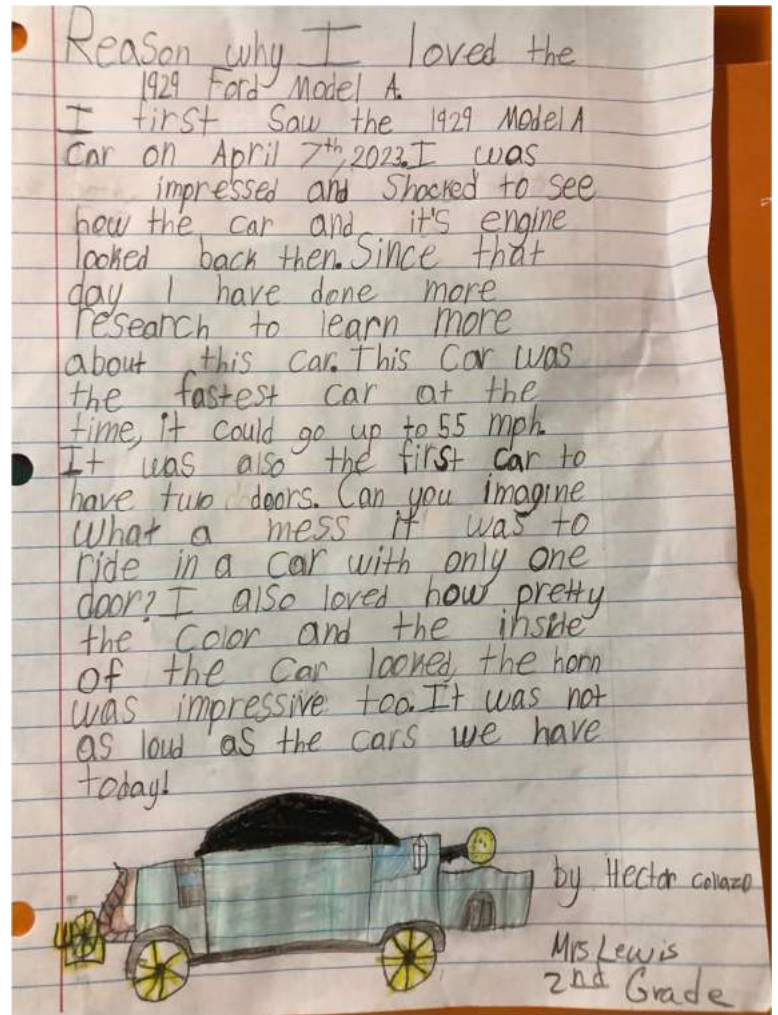 Reason why I loved the
1929 Ford Model A.
I first Saw the 1929 Model A
Car on April 7th, 2023. I was
impressed and Shocked to see
how the car and it's engine
looked back then. Since that
day I have done more
research to learn more
about this car. This Car was
the fastest car at the
time, it could go up to 55 mph.
It was also the first car to
have two doors. Can you imagine
What a mess it was to
ride in a car with only one
door? I also loved how pretty
the Color and the inside
of the Car looked, the horn
was impressive too. It was not
as loud as the cars we have
today!
by Hector Collazo
Mrs Lewis
2nd Grade